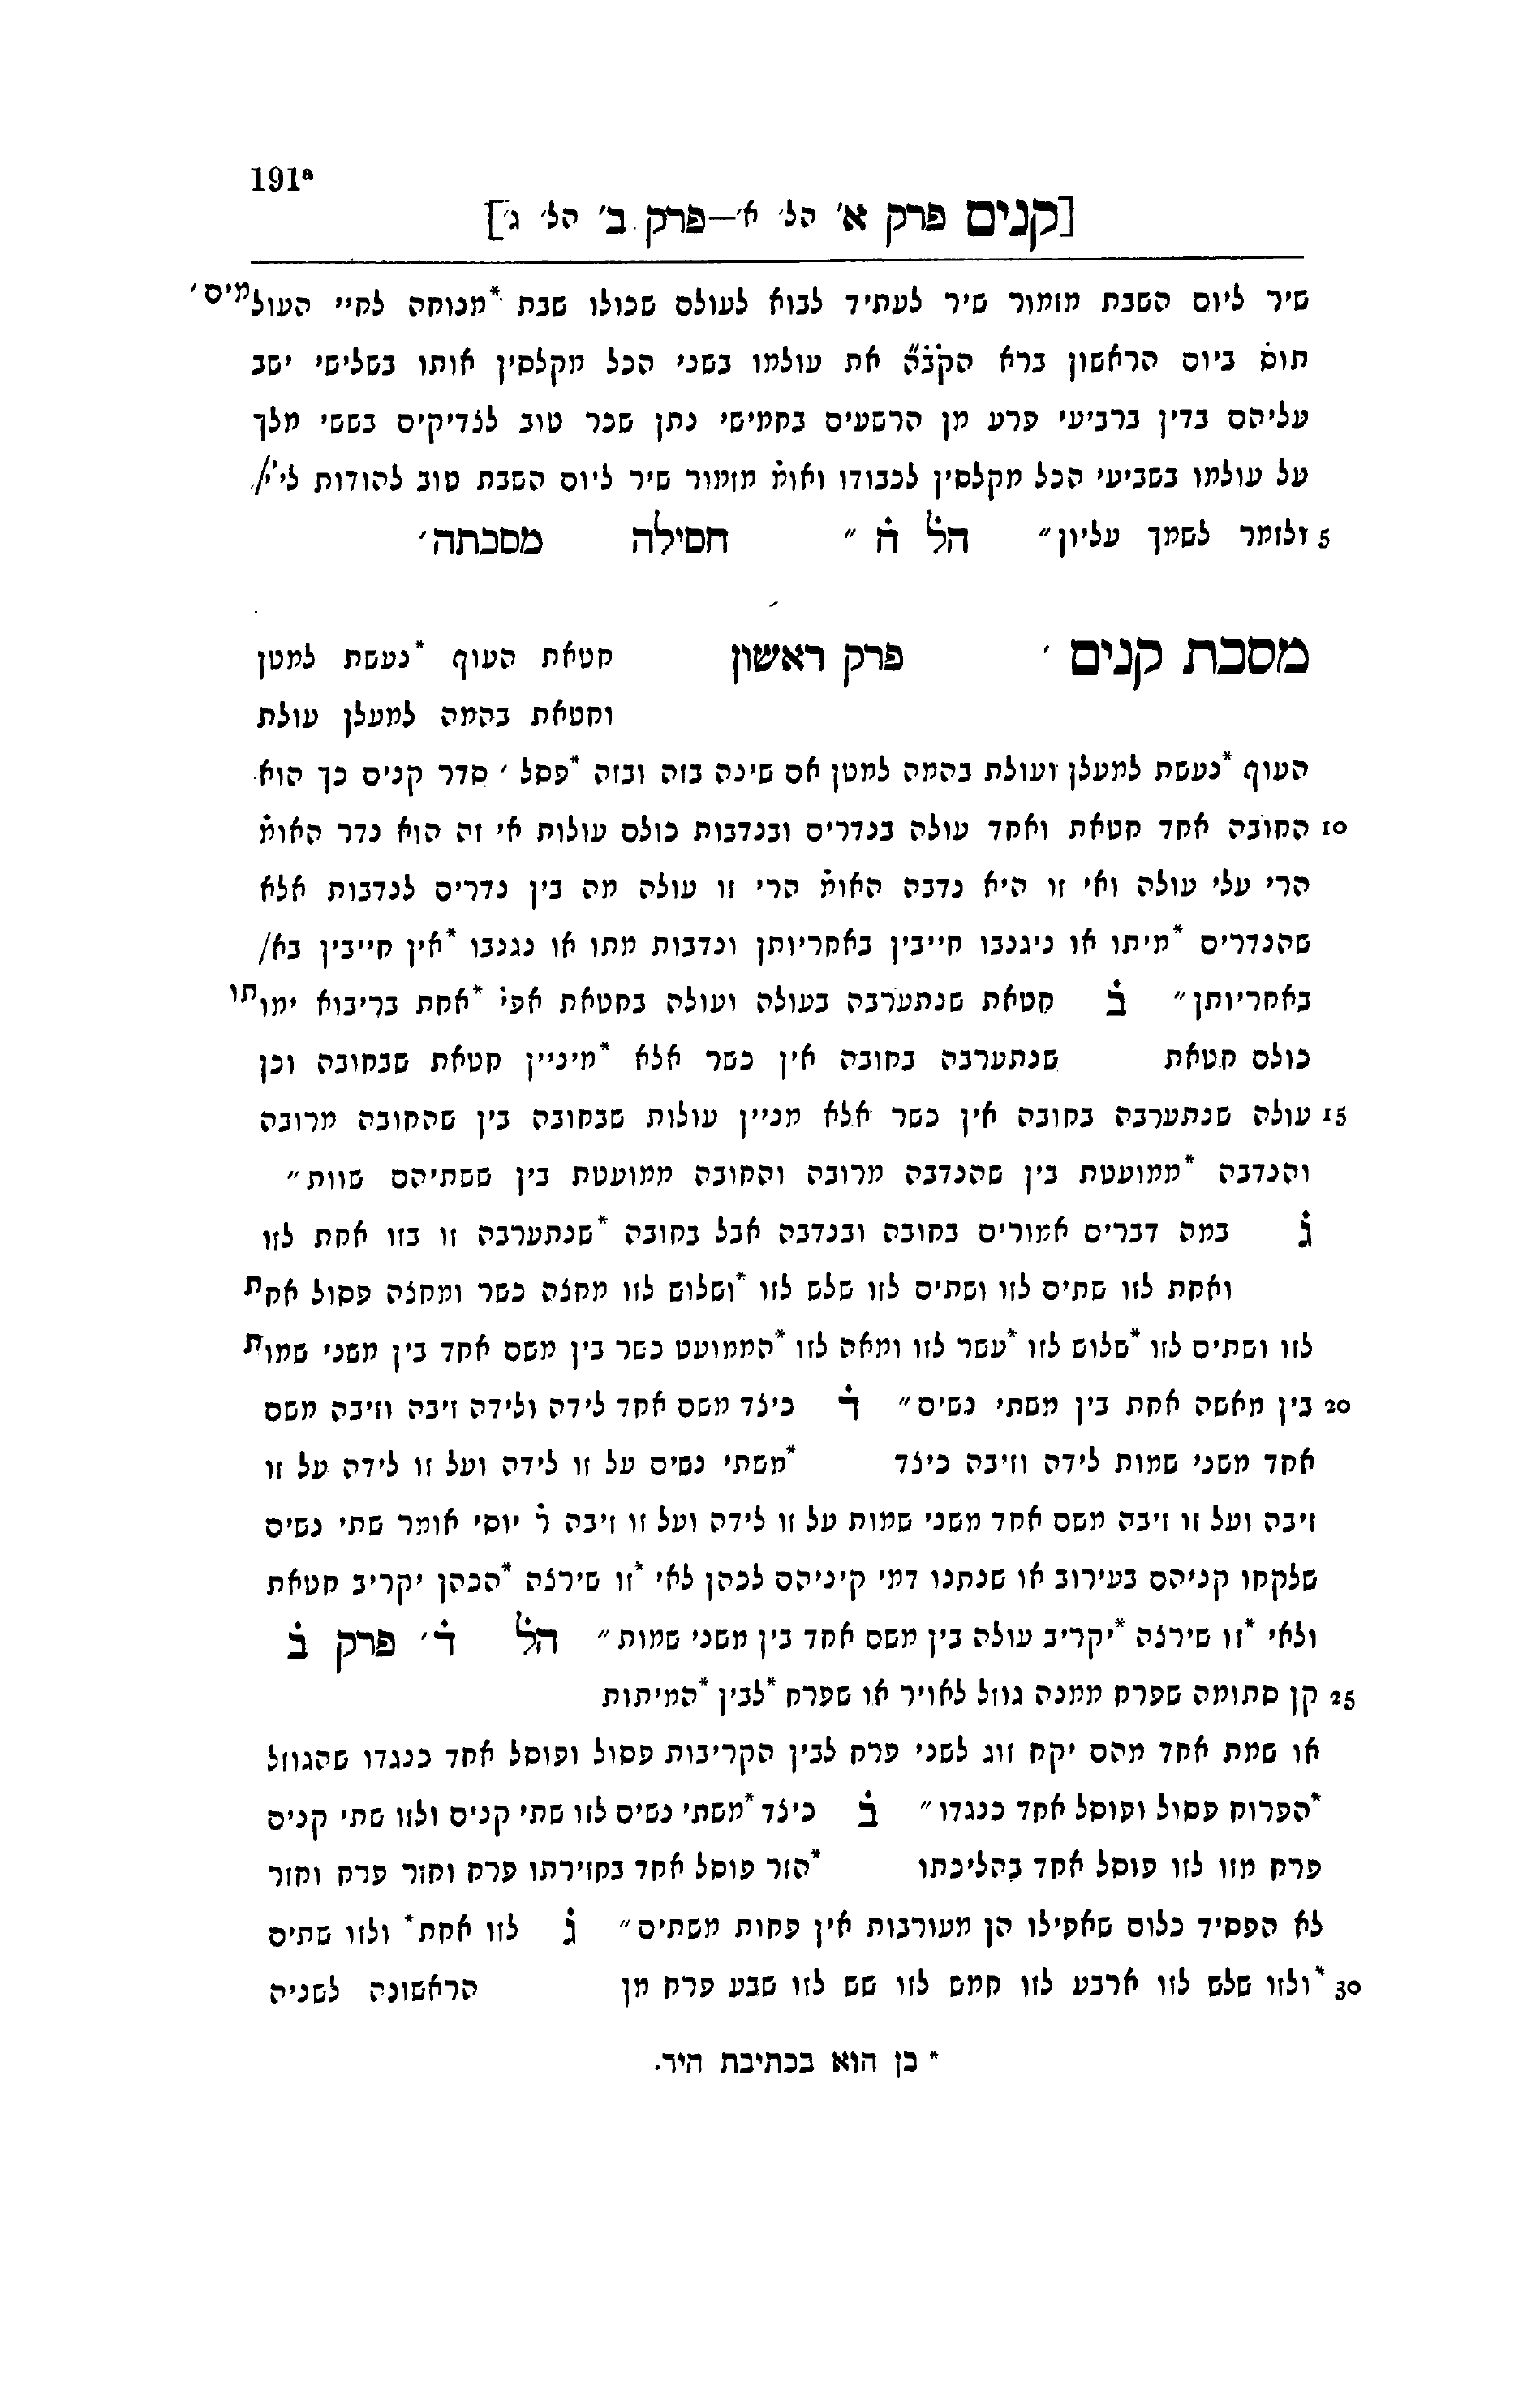 191ᵃ
[קנים פרק א׳ הל׳ א׳—פרק ב׳ הל׳ ג׳]
שיר ליום השבת מזמור שיר לעתיד לבוא לעולם שכולו שבת *מנוחה לחיי העולמים׳
תוס̇ ביום הראשון ברא הק̇ב̇״ה̇ את עולמו בשני הכל מקלסין אותו בשלישי ישב
עליהם בדין ברביעי פרע מן הרשעים בחמישי נתן שכר טוב לצדיקים בששי מלך
על עולמו בשביעי הכל מקלסין לכבודו ואומ̇ מזמור שיר ליום השבת טוב להודות לי׳י׳/
5 ולזמר לשמך עליון״ הל̇ ח̇ ״ חסילה מסכתה׳
מסכת קנים ׳ פרק ראשון חטאת העוף *נעשת למטן
וחטאת בהמה למעלן עולת
העוף *נעשת למעלן ועולת בהמה למטן אם שינה בזה ובזה *פסל ׳ סדר קנים כך הוא
10 החובה אחד חטאת ואחד עולה בנדרים ובנדבות כולם עולות אי זה הוא נדר האומ̇
הרי עלי עולה ואי זו היא נדבה האומ̇ הרי זו עולה מה בין נדרים לנדבות אלא
שהנדרים *מיתו או ניגנבו חייבין באחריותן ונדבות מתו או נגנבו *אין חייבין בא/
באחריותן״ ב̇ חטאת שנתערבה בעולה ועולה בחטאת אפי̇ *אחת בריבוא ימותו
כולם חטאת שנתערבה בחובה אין כשר אלא *מיניין חטאת שבחובה וכן
15 עולה שנתערבה בחובה אין כשר אלא מניין עולות שבחובה בין שהחובה מרובה
והנדבה *ממועטת בין שהנדבה מרובה והחובה ממועטת בין ששתיהם שוות״
ג̇ במה דברים אמורים בחובה ובנדבה אבל בחובה *שנתערבה זו בזו אחת לזו
ואחת לזו שתים לזו ושתים לזו שלש לזו *ושלוש לזו מחצה כשר ומחצה פסול אחת
לזו ושתים לזו *שלוש לזו *עשר לזו ומאה לזו *הממועט כשר בין משם אחד בין משני שמות
20 בין מאשה אחת בין משתי נשים״ ד̇ כיצד משם אחד לידה ולידה זיבה וזיבה משם
אחד משני שמות לידה וזיבה כיצד *משתי נשים על זו לידה ועל זו לידה על זו
זיבה ועל זו זיבה משם אחד משני שמות על זו לידה ועל זו זיבה ר̇ יוסי אומר שתי נשים
שלקחו קניהם בעירוב או שנתנו דמי קיניהם לכהן לאי *זו שירצה *הכהן יקריב חטאת
ולאי *זו שירצה *יקריב עולה בין משם אחד בין משני שמות״ הל̇ ד̇׳ פרק ב̇
25 קן סתומה שפרח ממנה גוזל לאויר או שפרח *לבין *המיתות
או שמת אחד מהם יקח זוג לשני פרח לבין הקריבות פסול ופוסל אחד כנגדו שהגוזל
*הפרוח פסול ופוסל אחד כנגדו״ ב̇ כיצד *משתי נשים לזו שתי קנים ולזו שתי קנים
פרח מזו לזו פוסל אחד בהליכתו *הזר פוסל אחד בחזירתו פרח וחזר פרח וחזר
לא הפסיד כלום שאפילו הן מעורבות אין פחות משתים״ ג̇ לזו אחת* ולזו שתים
30 *ולזו שלש לזו ארבע לזו חמש לזו שש לזו שבע פרח מן הראשונה לשניה
* כן הוא בכתיבת היד.